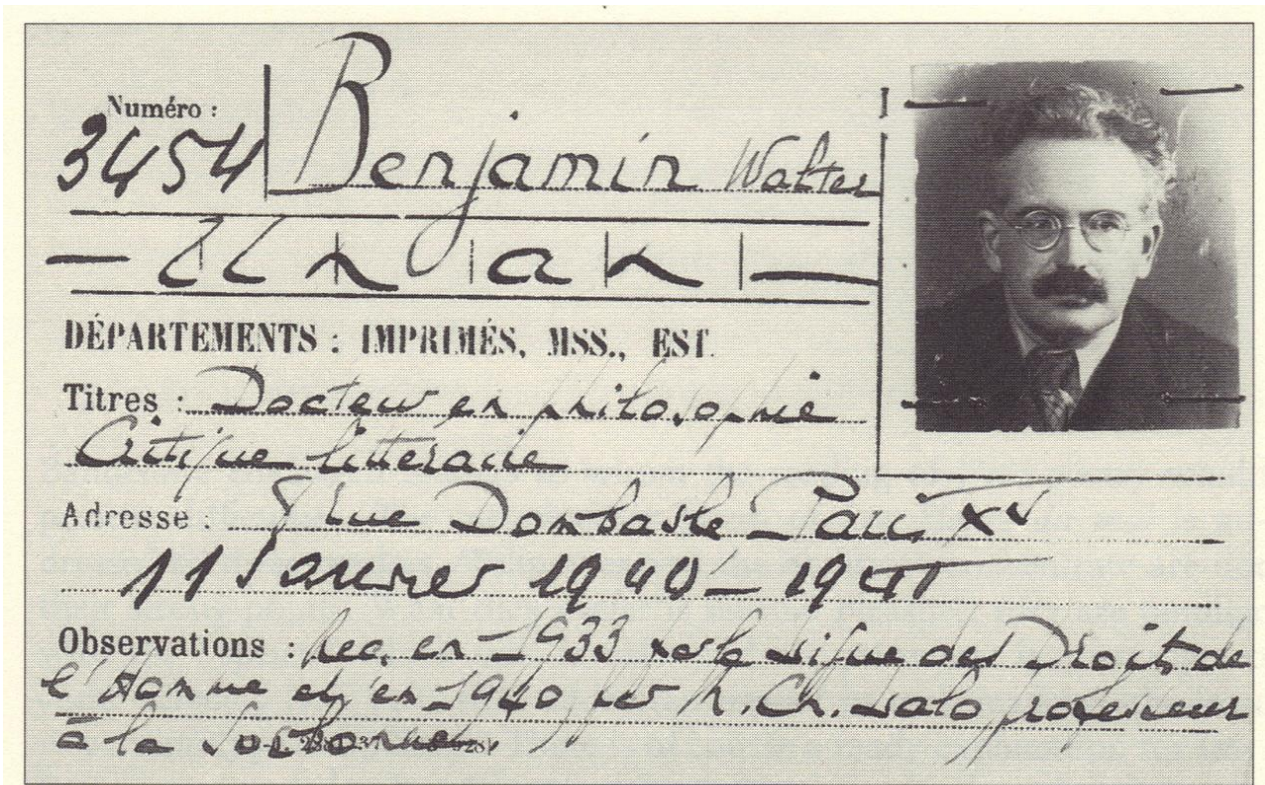 Numéro :
3454 Benjamin Walter
— Un an —
DÉPARTEMENTS : IMPRIMÉS, MSS., EST.
Titres : Docteur en philosophie
Critique littéraire
Adresse : rue Dombasle Paris XV
11 Janvier 1940 – 1941
Observations : Rec. en 1933 par la Ligue des Droits de
l'Homme et en 1940 par M. Ch. Lalo professeur
à la Sorbonne.